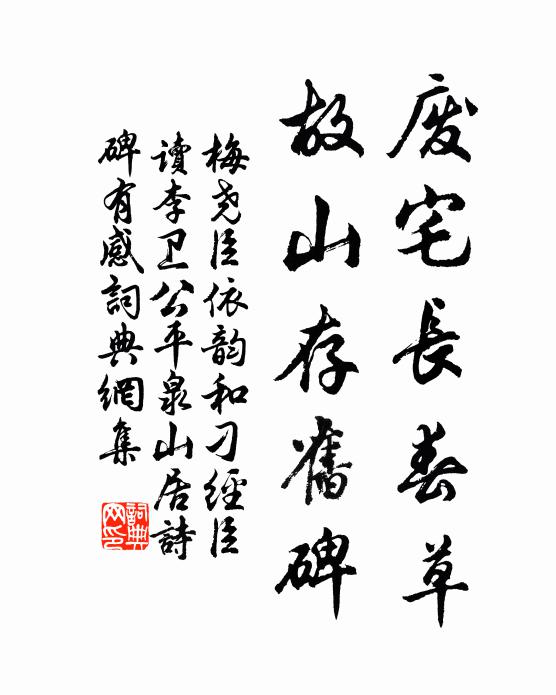 废宅長春草
故山存舊碑
梅尧臣依韵和刁經臣
讀李卫公平泉山居詩
碑有感詞典網集
詞典網印